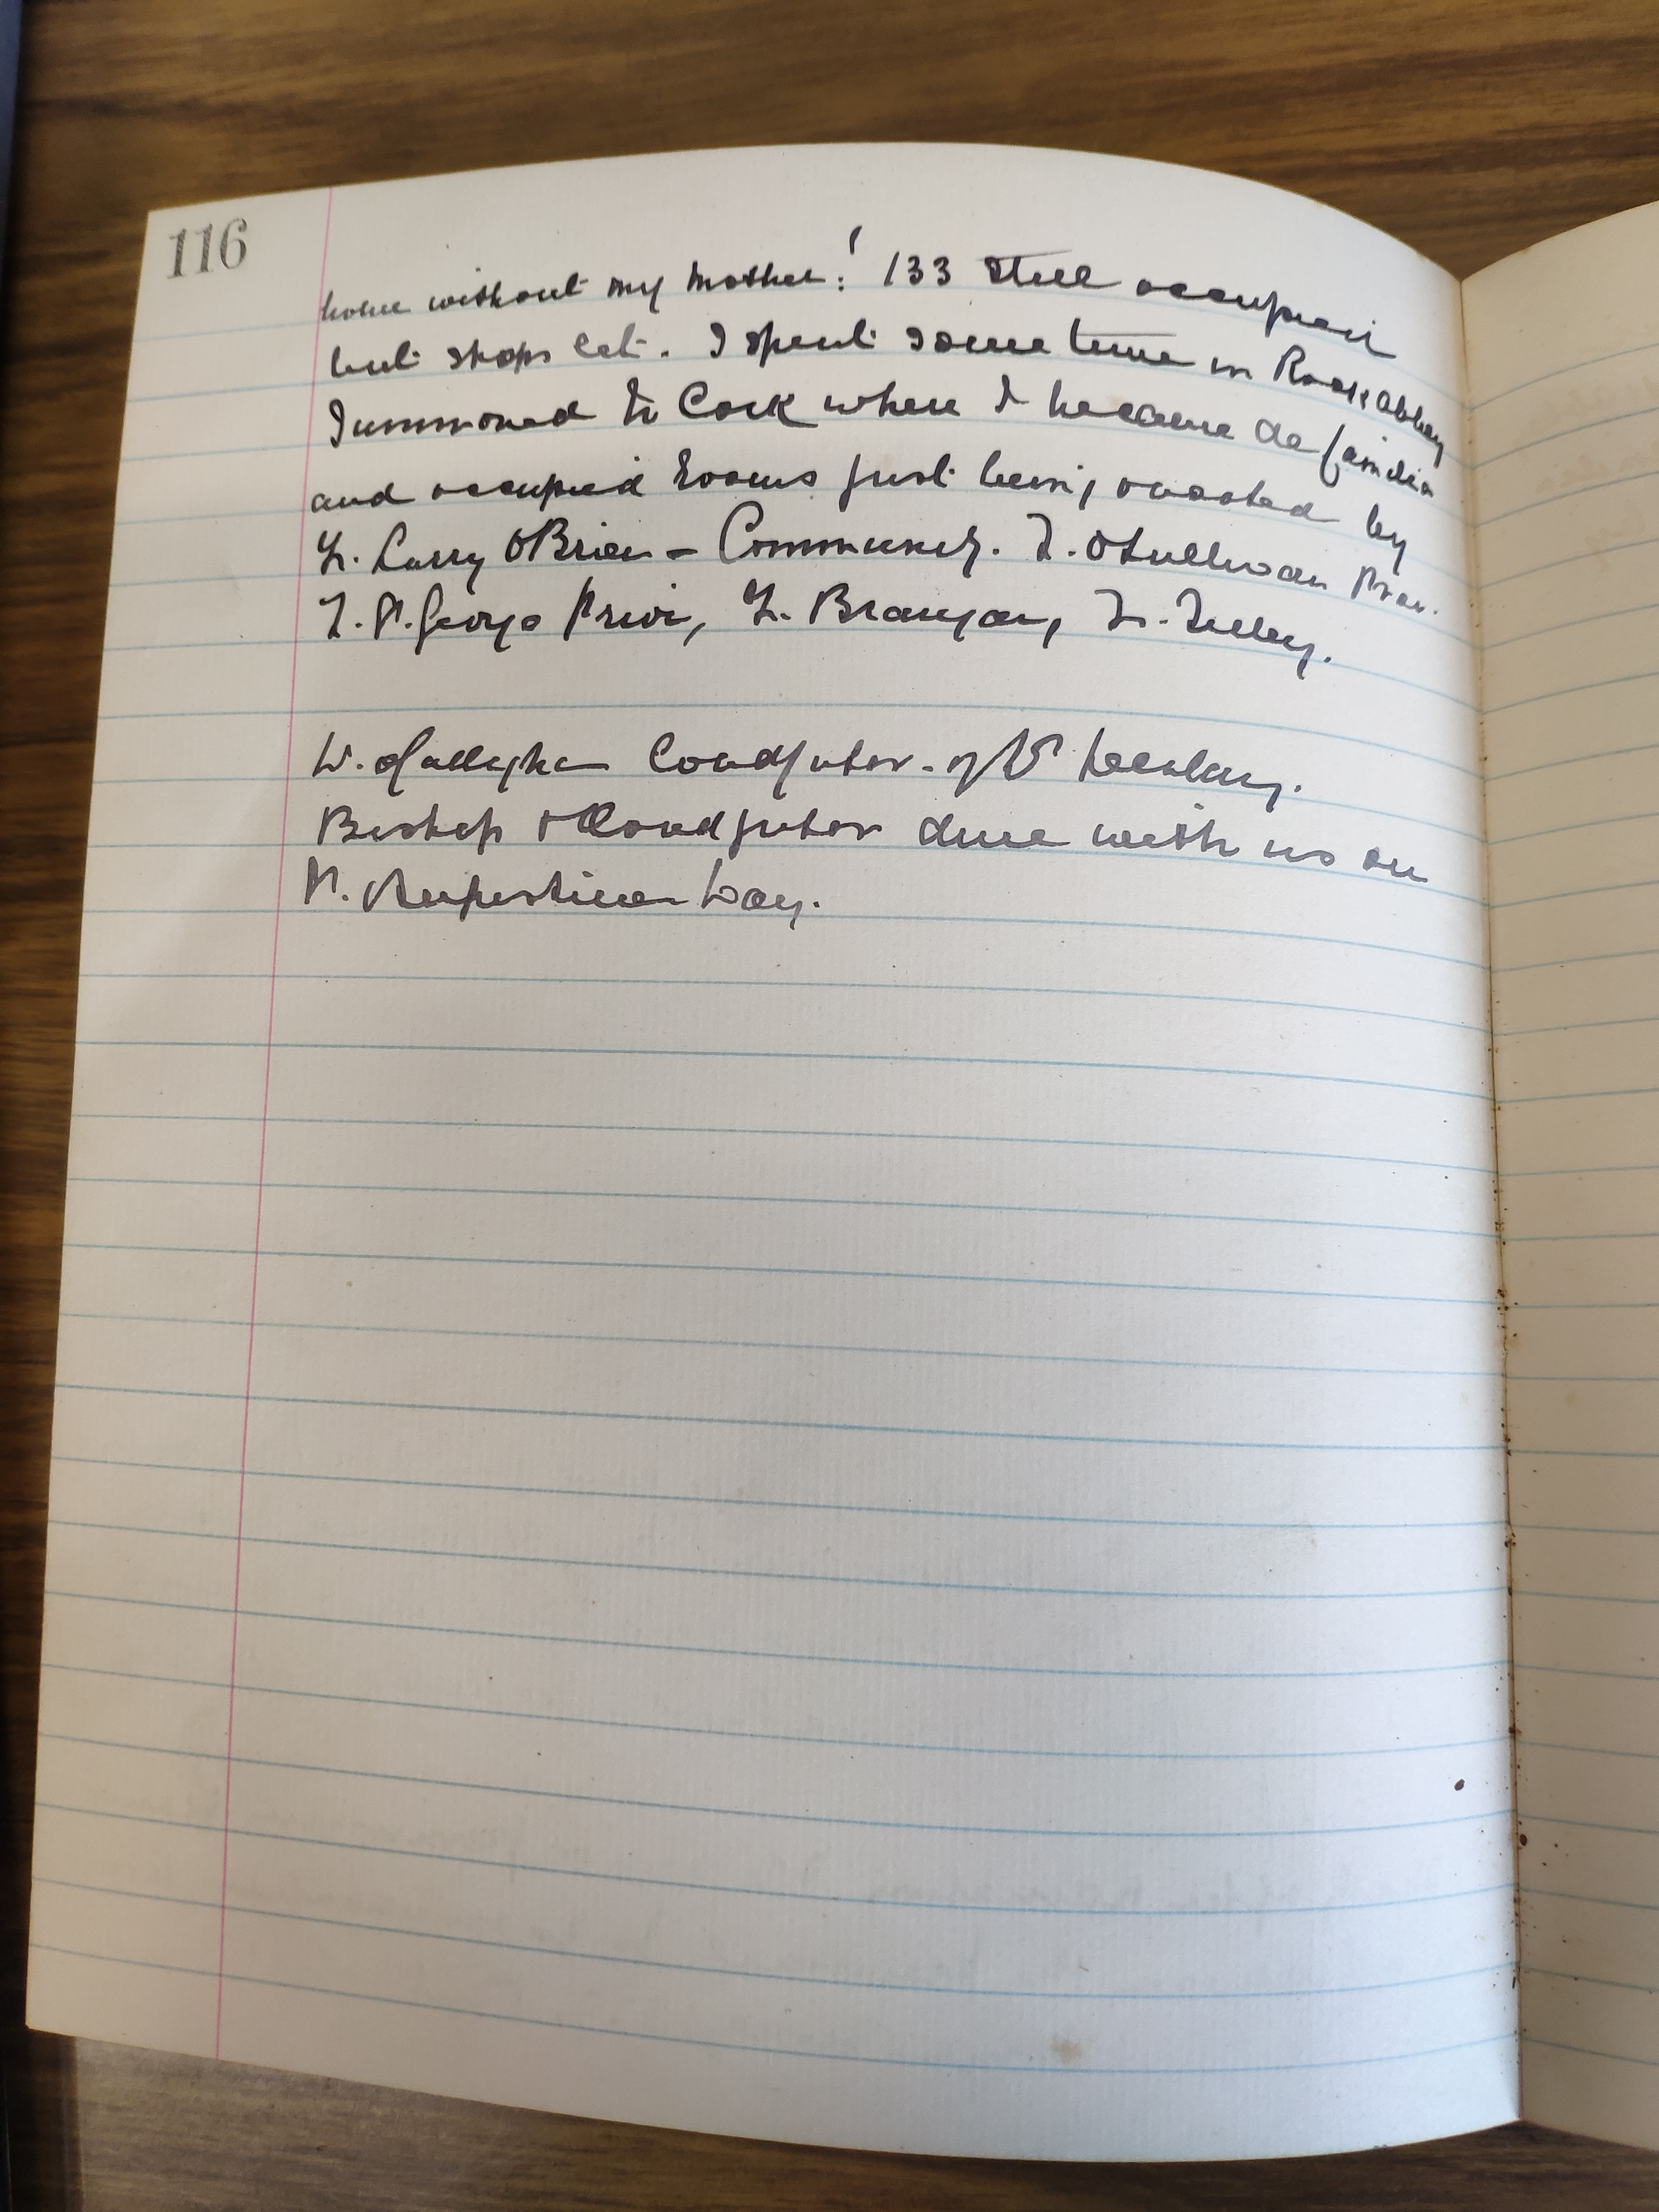 116
home without my mother! 133 still occupied
but shops let. I spent some time in Rock abbey
Summoned to Cork where I became de familia
and occupied rooms just being vacated by
F. Larry OBrien - Community. F. OSullivan Prov.
F. P. George Prior, F. Branigan, F. Tilley.
W. OGallagher Coadjutor - of
Bishop & Coadjutor dine with us on
St. Augustine's Day.